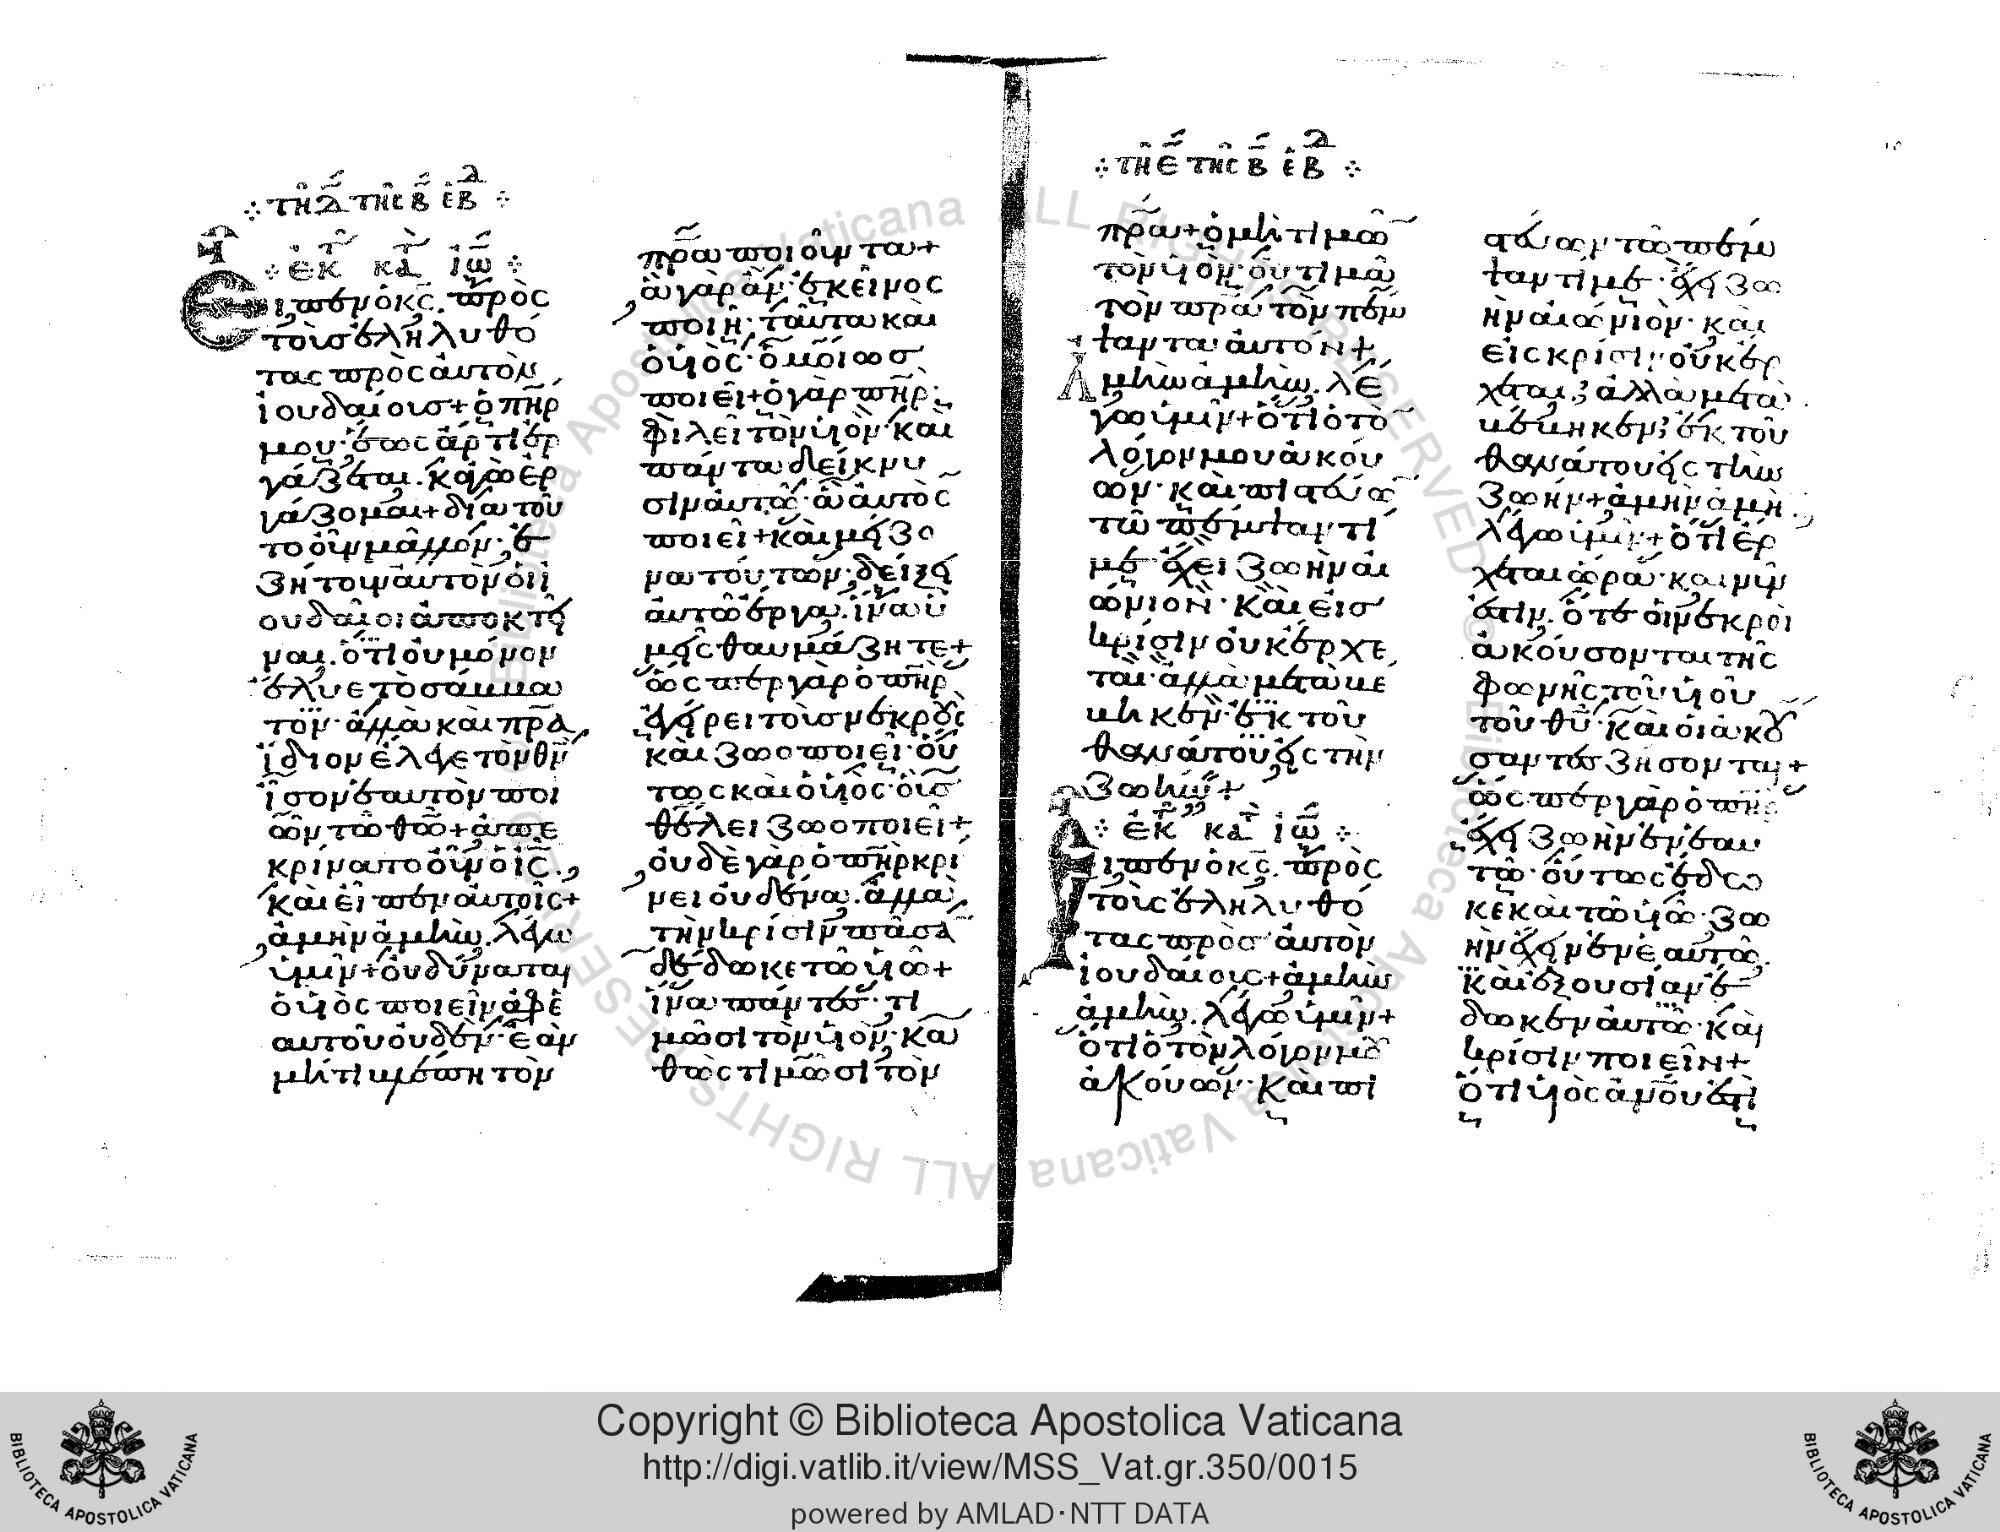 ⁘ τῆ δ̄ τῆς β̄ ἑβδ ⁘
⁘ ἐκ τ̅ κατ̀ ἰω̅ ⁘
Εἶπεν ὁ κ̅ς̅. πρὸς
τοὺς ἐληλυθό
τας πρὸς ἀυτὸν
ἰουδαίους+ ὁ π̅η̅ρ̅
μου· ἕως ἄρτι ἐρ
γάζεται. κἀγὼ ἐρ
γάζομαι+ διατοῦ
το οὖν μᾶλλον· ἐ
ζήτουν ἀυτὸν ὁι ἰ
ουδαῖοι ἀποκτεῖ
ναι. ὅτι ὀυ μόνον
ἔλυε τὸ σάββα
τον· ἀλλὰ καὶ π̅ρ̅α̅
ἴδιον ἔλεγε τὸν θ̅ν̅
ἶσον ἑαυτὸν ποι
ῶν τῶ θ̅ῶ̅+ ἀπε
κρίνατο οὖν ὁ ι̅ς̅.
καὶ εἶπεν ἀυτοῖς+
ἀμὴν ἀμὴν. λέγω
ὑμῖν+ ὀυ δύναται
ὁ υἱὸς ποιεῖν ἀφ ἑ
αυτοῦ ὀυδέν· ἐὰν
μή τι βλέπη τὸν
π̅ρ̅α̅ ποιοῦντα+
ἃ γὰρ ἂν ἐκεῖνος
ποιῆ· ταῦτα καὶ
ὁ υἱὸς· ὁμοίως
ποιεῖ+ ὁ γὰρ π̅η̅ρ̅·
φιλεῖ τὸν υἱὸν· καὶ
πάντα δείκνυ
σιν ἀυτῶ· ἃ ἀυτὸς
ποιεῖ+ καὶ μείζο
να τούτων· δείξει
ἀυτῶ ἔργα. ἵνα ὑ
μεῖς θαυμάζητε+
ὥσπερ γὰρ ὁ π̅η̅ρ̅
ἐγείρει τοὺς νεκροὺς
καὶ ζωοποιεῖ· οὕ
τως καὶ ὁ υἱὸς· οὓς
θέλει ζωοποιεῖ+
ὀυδὲ γὰρ ὁ π̅η̅ρ̅ κρί
νει ὀυδένα. ἀλλὰ
τὴν κρίσιν πᾶσα̅
δέδωκε τῶ υἱῶ+
ἵνα πάντες· τι
μῶσι τὸν υἱὸν· κα
θὼς τιμῶσι τὸν
⁘ τῆ ε̄ τῆς β̄ ἑβδ ⁘
π̅ρ̅α̅+ ὁ μὴ τιμῶ̅
τὸν υἱὸν· ὀυ τιμᾶ
τὸν π̅ρ̅α̅ τὸν πέμ
ψαντα ἀυτόν+
Ἀμὴν ἀμὴν. λέ
γω ὑμῖν+ ὅτι ὁ τὸ̅
λόγον μου ἀκού
ων· καὶ πιστεύω̅
τῶ πέμψαντί
με· ἔχει ζωὴν αἰ
ώνιον· καὶ εἰς
κρίσιν ὀυκ ἔρχε
ται· ἀλλὰ μεταβέ
βηκεν· ἐκ τοῦ
θανάτου εἰς τὴν
ζωήν+
⁘ ἐκ κατ̀ ἰω̅ ⁘
Εἶπεν ὁ κ̅ς̅. πρὸς
τοὺς ἐληλυθό
τας πρὸς ἀυτὸν
ἰουδαίους+ ἀμὴν
ἀμὴν. λέγω ὑμῖν+
ὅτι ὁ τὸν λόγον μου
ἀκούων· καὶ πι
στεύων τῶ πέμ
ψαντί με· ἔχει ζω
ὴν αἰώνιον· καὶ
εἰς κρίσιν ὀυκ ἔρ
χεται· ἀλλὰ μετα
βέβηκεν· ἐκ τοῦ
θανάτου εἰς τὴν
ζωήν+ ἀμὴν ἀμὴ̅.
λέγω ὑμῖν+ ὅτι ἔρ
χεται ὥρα· και νῦν
ἐστιν. ὅτε ὁι νεκροὶ
ἀκούσονται τῆς
φωνῆς τοῦ υἱοῦ
τοῦ θ̅υ̅· καὶ ὁι ἀκού
σαντες ζήσονται+
ὥσπερ γὰρ ὁ π̅η̅ρ̅
ἔχει ζωὴν ἐν ἑαυ
τῶ· ὅυτως ἔδω
κε καὶ τῶ υἱῶ· ζω
ὴν ἔχειν ἐν ἑαυτῶ.
καὶ ἐξουσίαν ἔ
δωκεν ἀυτῶ· καὶ
κρίσιν ποιεῖν+
ὅτι υἱὸς ἀ̅ν̅ο̅υ̅ ἐστὶ
Copyright © Biblioteca Apostolica Vaticana
http://digi.vatlib.it/view/MSS_Vat.gr.350/0015
powered by AMLAD·NTT DATA
BIBLIOTECA APOSTOLICA VATICANA
BIBLIOTECA APOSTOLICA VATICANA